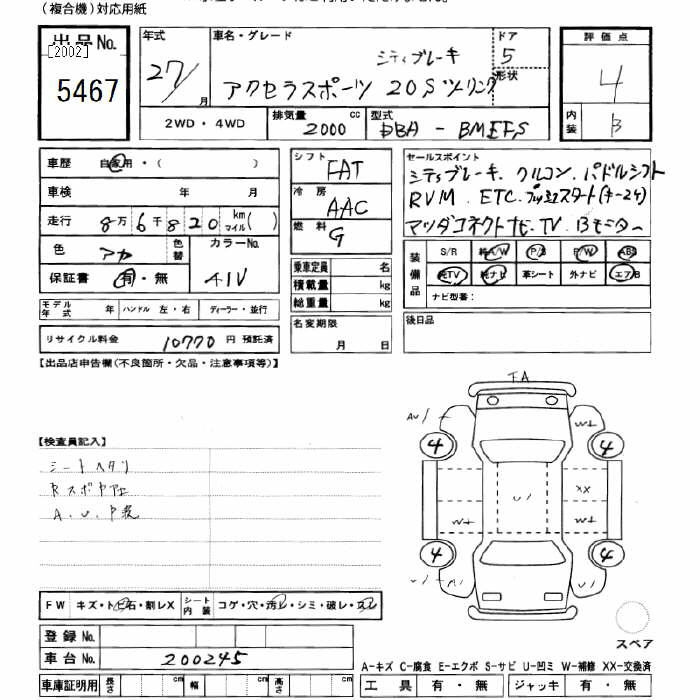 (複合機)対応用紙
出品No.
[2002]
5467
年式
27/
月
車名・グレード
シティブレーキ
アクセラスポーツ 20Sツーリング
ドア
5
形状
評価点
4
内装
B
2WD・4WD
排気量
2000
cc
型式
DBA -
車歴 自家用・( )
車検 年 月
走行 8万6千820 km マイル( )
色 アカ
色替
カラーNo.
41V
保証書 有・無
モデル年式 年 ハンドル 左・右 ディーラー・並行
リサイクル料金 10770 円 預託済
シフト
FAT
冷房
AAC
燃料
G
乗車定員 名
積載量 kg
総重量 kg
名変期限
月 日
セールスポイント
シティブレーキ. クルコン. パドルシフト
RVM. ETC. プッシュスタート(キー2ケ)
マツダコネクトナビ.TV. Bモニター
装備品
S/R 純A/W P/S P/W ABS
純TV 純ナビ 革シート 外ナビ エアB
ナビ型番:
後日品
【出品店申告欄(不良箇所・欠品・注意事項等)】
【検査員記入】
シートヘタリ
A.U.
FA
W+
4
4
U/
XX
W+
W+
4
4
FW キズ・トビ石・割レX
シート内装
コゲ・穴・汚レ・シミ・破レ・スレ
登録No.
車台No. 200245
車庫証明用 長さ cm 幅 cm 高さ cm
スペア
A-キズ C-腐食 E-エクボ S-サビ U-凹ミ W-補修 XX-交換済
工具 有・無 ジャッキ 有・無